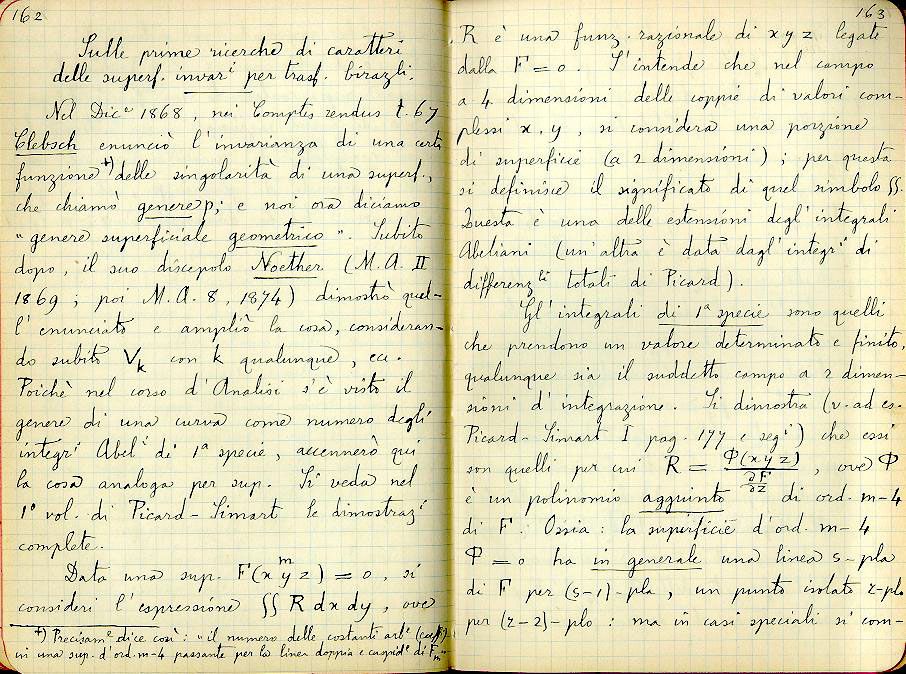 162
Sulle prime ricerche di caratteri
delle superf. invar.i per trasf. birazli.
Nel Dice 1868, nei Comptes rendus t. 67
Clebsch enunciò l'invarianza di una certa
funzione +) delle singolarità di una superf.,
che chiamò genere p; e noi ora diciamo
"genere superficiale geometrico". Subito
dopo, il suo discepolo Noether (M.A. II
1869; poi M.A. 8, 1874) dimostrò quel-
l'enunciato e ampliò la cosa, consideran-
do subito Vk con k qualunque, ecc.
Poichè nel corso d'Analisi s'è visto il
genere di una curva come numero degli
integri Abeli di 1a specie, accennerò qui
la cosa analoga per sup. Si veda nel
1o vol. di Picard-Simart le dimostrazi
complete.
Data una sup. F^m(x y z) = 0, si
consideri l'espressione ∬ R dx dy, ove
+) Precisame dice così: "il numero delle costanti arbe (coeff.)
in una sup. d'ord. m-4 passante per la linea doppia e cuspide di Fm"
163
R è una funz. razionale di x y z legate
dalla F = 0. S'intende che nel campo
a 4 dimensioni delle coppie di valori com-
plessi x, y, si considera una porzione
di superficie (a 2 dimensioni); per questa
si definisce il significato di quel simbolo ∬.
Questa è una delle estensioni degl'integrali
Abeliani (un'altra è data dagl'integri di
differenzli totali di Picard).
Gl'integrali di 1a specie sono quelli
che prendono un valore determinato e finito,
qualunque sia il suddetto campo a 2 dimen-
sioni d'integrazione. Si dimostra (v. ad es.
Picard-Simart I pag. 177 e segi) che essi
son quelli per cui R = Φ(x y z) / ∂F/∂z, ove Φ
è un polinomio aggiunto di ord. m-4
di F. Ossia: la superficie d'ord. m-4
Φ = 0 ha in generale una linea s-pla
di F per (s-1)-pla, un punto isolato r-plo
per (r-2)-plo: ma in casi speciali si com-